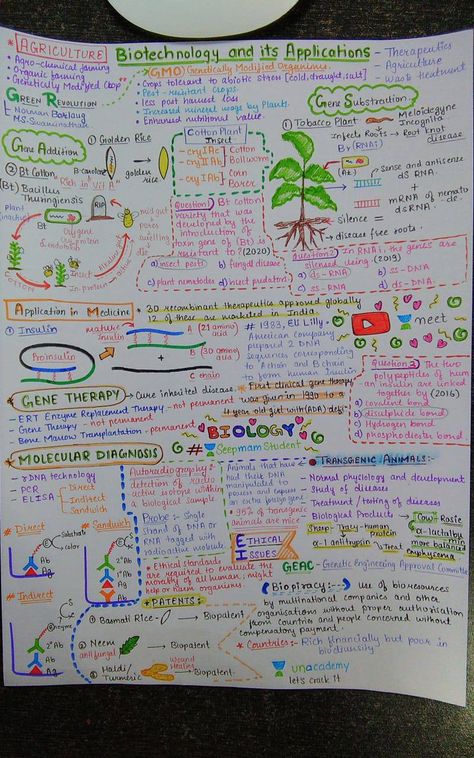 * AGRICULTURE
* Agro-chemical farming
* Organic farming
* Genetically Modified Crop
GREEN REVOLUTION
Norman Borlaug
M.S. Swaminathan
Biotechnology and its Applications
- Therapeutics
- Agriculture
- Waste treatment
GMO: Genetically Modified Organisms
- Crops tolerant to abiotic stress [cold, draught, salt]
- Pest-resistant crops
- less post harvest loss
- Increased mineral usage by Plants
- Enhanced nutritional value
Gene Addition
① Golden Rice
B-carotene
golden rice
"Rich in vit A"
② Bt Cotton
(Bt) Bacillus Thuringiensis
plant (inactive)
Bt
Cry gene
Cry protein
& endotoxin
RIP
midgut
pores
swelling
die
Alkaline pH
Insect
In-protein
COTTON
Cotton Plant
Insect
cry I Ac
cry II Ab
Cotton Bollworm
cry I Ab
Corn Borer
Question 1 Bt cotton
variety that was
developed by the
introduction of
toxin gene of (Bt) is
resistant to? (2020)
a) insect pests
b) fungal disease
c) plant nematodes
d) insect predators
Gene Substraction
① Tobacco Plant
Meloidegyne Incognita
Infects Roots → Root knot disease
(By RNAi)
(At.)
sense and antisense
ds RNA
mRNA of nemato
ds RNA
Silence =
disease free roots.
Question 2 In RNAi, the genes are
silenced using (2019)
a) ds-RNA
b) ss-DNA
c) ss-RNA
d) ds-DNA
Application in Medicine
* 30 recombinant therapeutics approved globally
12 of these are marketed in India.
① Insulin
Mature insulin
A (21 amino acid)
B (30 amino acid)
Proinsulin
C chain
# 1983, Eli Lilly
American company
prepared 2 DNA
sequences corresponding
to A chain and B chain
to form human Insulin
meet
Question 2 The two
polypeptides of human
insulin are linked
together by (2016)
a) covalent bond
b) disulphide bond
c) Hydrogen bond
d) phosphodiester bond
* GENE THERAPY → Cure inherited disease.
- ERT Enzyme Replacement Therapy - not permanent
- Gene Therapy - not permanent
- Bone Marrow Transplantation - permanent
* First clinical gene therapy
was given in 1990 to a
4 year old girl with (ADA) defi
BIOLOGY
# Seepmam Student
* MOLECULAR DIAGNOSIS
- rDNA technology
- PCR
- ELISA
Direct
Indirect
Sandwich
* Direct
Substrate
color
Ab
Ag
* Sandwich
E
S
2°Ab
Ab
Ag
Ab
* Indirect
E enzyme
S
2°Ab
Ab
Ag
Autoradiography:
detection of radio
active isotope within
a biological sample
Probe: Single
strand of DNA or
RNA tagged with
radioactive molecule
Animals that have
had their DNA
manipulated to
possess and express
an extra foreign gene
95% of transgenic
animals are mice
* TRANSGENIC ANIMALS:-
- Normal physiology and development
- Study of diseases
- Treatment/testing of diseases
- Biological Products
Cow - Rosie
α-lactalbumin
more balanced
Sheep - Tracy - human protein
α-1 antitrypsin → Treat emphysema
ETHICAL ISSUES
* Ethical standards
are required to evaluate the
morality of all human; might
help or harm organisms.
GEAC - Genetic Engineering Approval Committee
Biopiracy:- Use of bioresources
by multinational companies and other
organisations without proper authorisation
from countries and people concerned without
compensatory payment.
* Countries: Rich financially but poor in
biodiversity
* PATENTS:-
① Basmati Rice - → Biopatent
② Neem → Biopatent
antifungal
③ Haldi/
Turmeric
Wound Healing → Biopatent.
unacademy
let's crack it